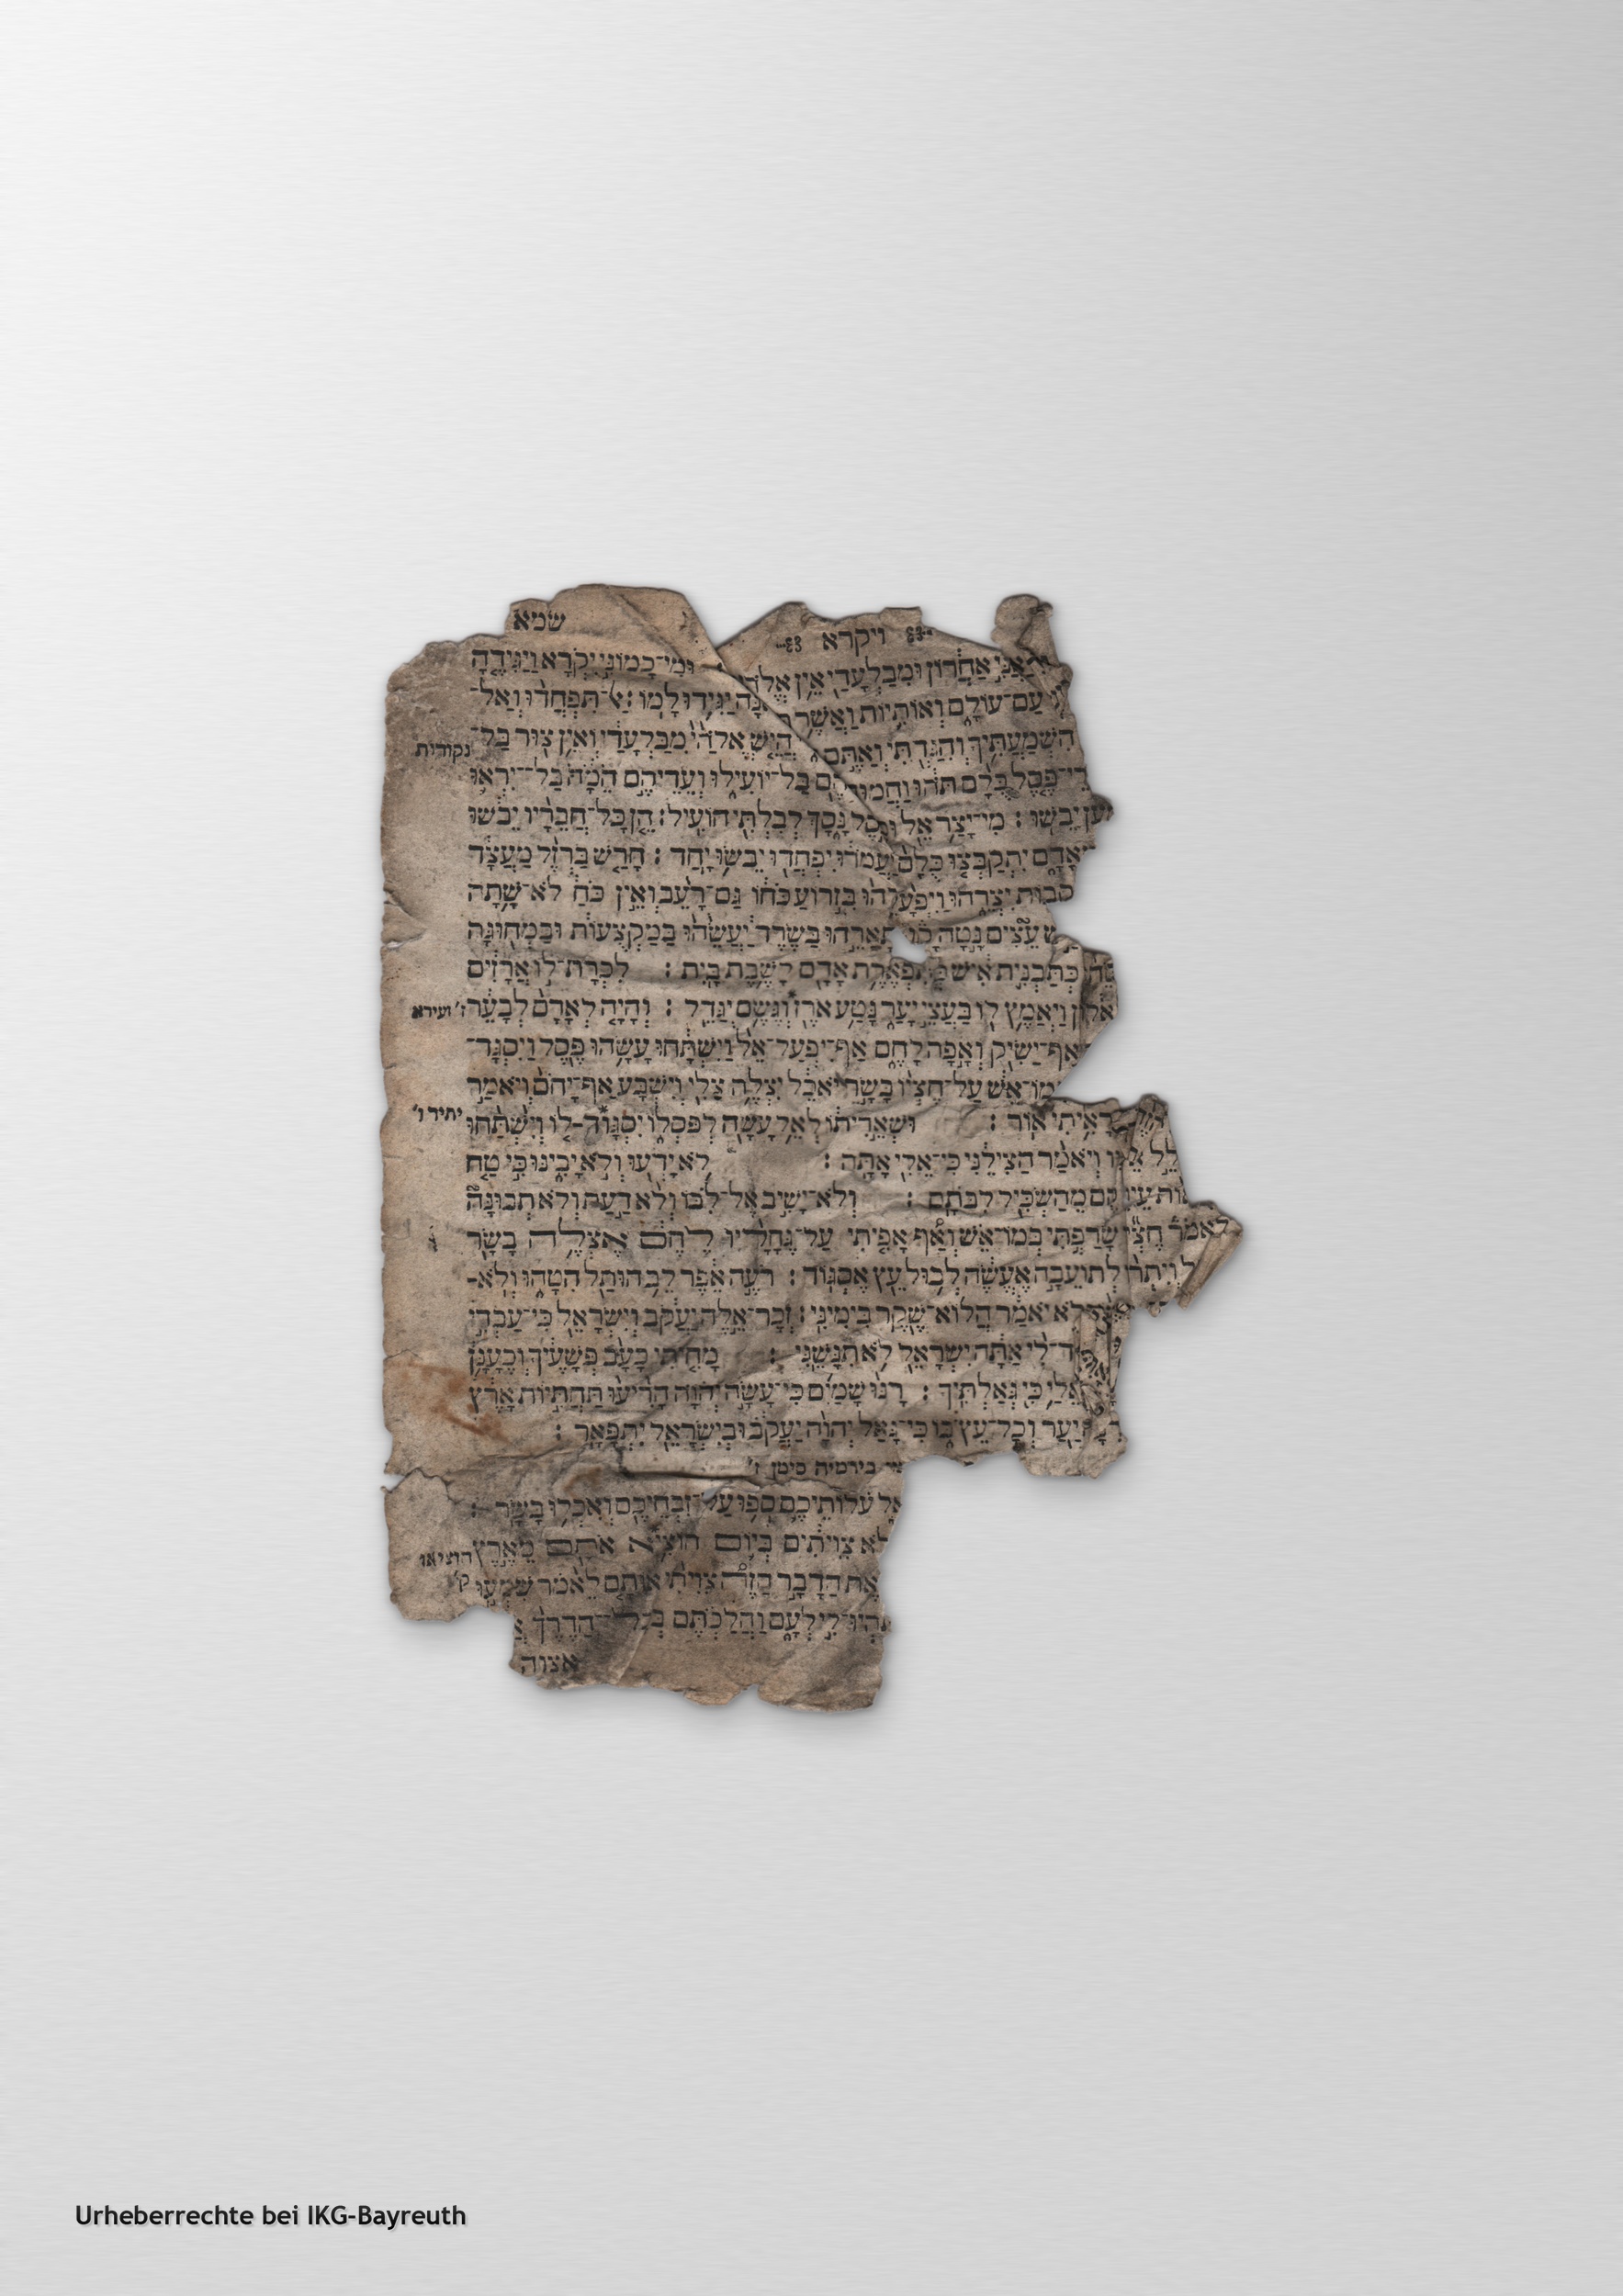 שמא
ויקרא
וַאֲנִי אַחֲרוֹן וּמִבַּלְעָדַי אֵין אֱלֹהִים׃ וּמִי־כָמוֹנִי יִקְרָא וְיַגִּידֶהָ
עַם־עוֹלָם וְאוֹתִיּוֹת וַאֲשֶׁר תָּבֹאנָה יַגִּידוּ לָמוֹ׃ אַל־תִּפְחֲדוּ וְאַל־
הִשְׁמַעְתִּיךָ וְהִגַּדְתִּי וְאַתֶּם הֲיֵשׁ אֱלוֹהַּ מִבַּלְעָדַי וְאֵין צוּר בַּל־
נקודות
פֶסֶל כֻּלָּם תֹּהוּ וַחֲמוּדֵיהֶם בַּל־יוֹעִילוּ וְעֵדֵיהֶם הֵמָּה בַּל־יִרְאוּ
יֵבֹשׁוּ׃ מִי־יָצַר אֵל וּפֶסֶל נָסָךְ לְבִלְתִּי הוֹעִיל׃ הֵן כָּל־חֲבֵרָיו יֵבֹשׁוּ
מֵאָדָם יִתְקַבְּצוּ כֻלָּם יַעֲמֹדוּ יִפְחֲדוּ יֵבֹשׁוּ יָחַד׃ חָרַשׁ בַּרְזֶל מַעֲצָד
יִצְּרֵהוּ וַיִּפְעָלֵהוּ בִּזְרוֹעַ כֹּחוֹ גַּם־רָעֵב וְאֵין כֹּחַ לֹא־שָׁתָה
עֵצִים נָטָה קָו יְתָאֲרֵהוּ בַשֶּׂרֶד יַעֲשֵׂהוּ בַּמַּקְצֻעוֹת וּבַמְּחוּגָה
כְּתַבְנִית אִישׁ כְּתִפְאֶרֶת אָדָם לָשֶׁבֶת בָּיִת׃ לִכְרָת־לוֹ אֲרָזִים
וַיְאַמֶּץ לוֹ בַּעֲצֵי יָעַר נָטַע אֹרֶן וְגֶשֶׁם יְגַדֵּל׃ וְהָיָה לְאָדָם לְבָעֵר
ז׳ זעירא
אַף־יַשִּׂיק וְאָפָה לָחֶם אַף־יִפְעַל־אֵל וַיִּשְׁתָּחוּ עָשָׂהוּ פֶסֶל וַיִּסְגָּד־
אֵשׁ עַל־חֶצְיוֹ בָּשָׂר יֹאכֵל יִצְלֶה צָלִי וְיִשְׂבָּע אַף־יָחֹם וְיֹאמַר
רָאִיתִי אוּר׃ וּשְׁאֵרִיתוֹ לְאֵל עָשָׂה לְפִסְלוֹ יִסְגּוֹד־לוֹ וְיִשְׁתַּחוּ
יתיר ו׳
וְיֹאמַר הַצִּילֵנִי כִּי־אֵלִי אָתָּה׃ לֹא יָדְעוּ וְלֹא יָבִינוּ כִּי טַח
עֵינֵיהֶם מֵהַשְׂכִּיל לִבֹּתָם׃ וְלֹא־יָשִׁיב אֶל־לִבּוֹ וְלֹא דַעַת וְלֹא תְבוּנָה
לֵאמֹר חֶצְיוֹ שָׂרַפְתִּי בְמוֹ־אֵשׁ וְאַף אָפִיתִי עַל־גֶּחָלָיו לֶחֶם אֶצְלֶה בָשָׂר
וְיִתְרוֹ לְתוֹעֵבָה אֶעֱשֶׂה לְבוּל עֵץ אֶסְגּוֹד׃ רֹעֶה אֵפֶר לֵב הוּתַל הִטָּהוּ וְלֹא־
וְלֹא יֹאמַר הֲלוֹא שֶׁקֶר בִּימִינִי׃ זְכָר־אֵלֶּה יַעֲקֹב וְיִשְׂרָאֵל כִּי־עַבְדִּי
לִי אַתָּה יִשְׂרָאֵל לֹא תִנָּשֵׁנִי׃ מָחִיתִי כָעָב פְּשָׁעֶיךָ וְכֶעָנָן
אֵלַי כִּי גְאַלְתִּיךָ׃ רָנּוּ שָׁמַיִם כִּי־עָשָׂה יְהוָה הָרִיעוּ תַּחְתִּיּוֹת אָרֶץ
יַעַר וְכָל־עֵץ בּוֹ כִּי־גָאַל יְהוָה יַעֲקֹב וּבְיִשְׂרָאֵל יִתְפָּאָר׃
בירמיה סימן ז׳
עֹלוֹתֵיכֶם סְפוּ עַל־זִבְחֵיכֶם וְאִכְלוּ בָשָׂר׃
צִוִּיתִים בְּיוֹם הוֹצִיא אֹתָם מֵאֶרֶץ
הוציאו
ק׳
אֶת הַדָּבָר הַזֶּה צִוִּיתִי אוֹתָם לֵאמֹר שִׁמְעוּ
תִּהְיוּ־לִי לְעָם וַהֲלַכְתֶּם בְּכָל־הַדֶּרֶךְ
אצוה
Urheberrechte bei IKG-Bayreuth